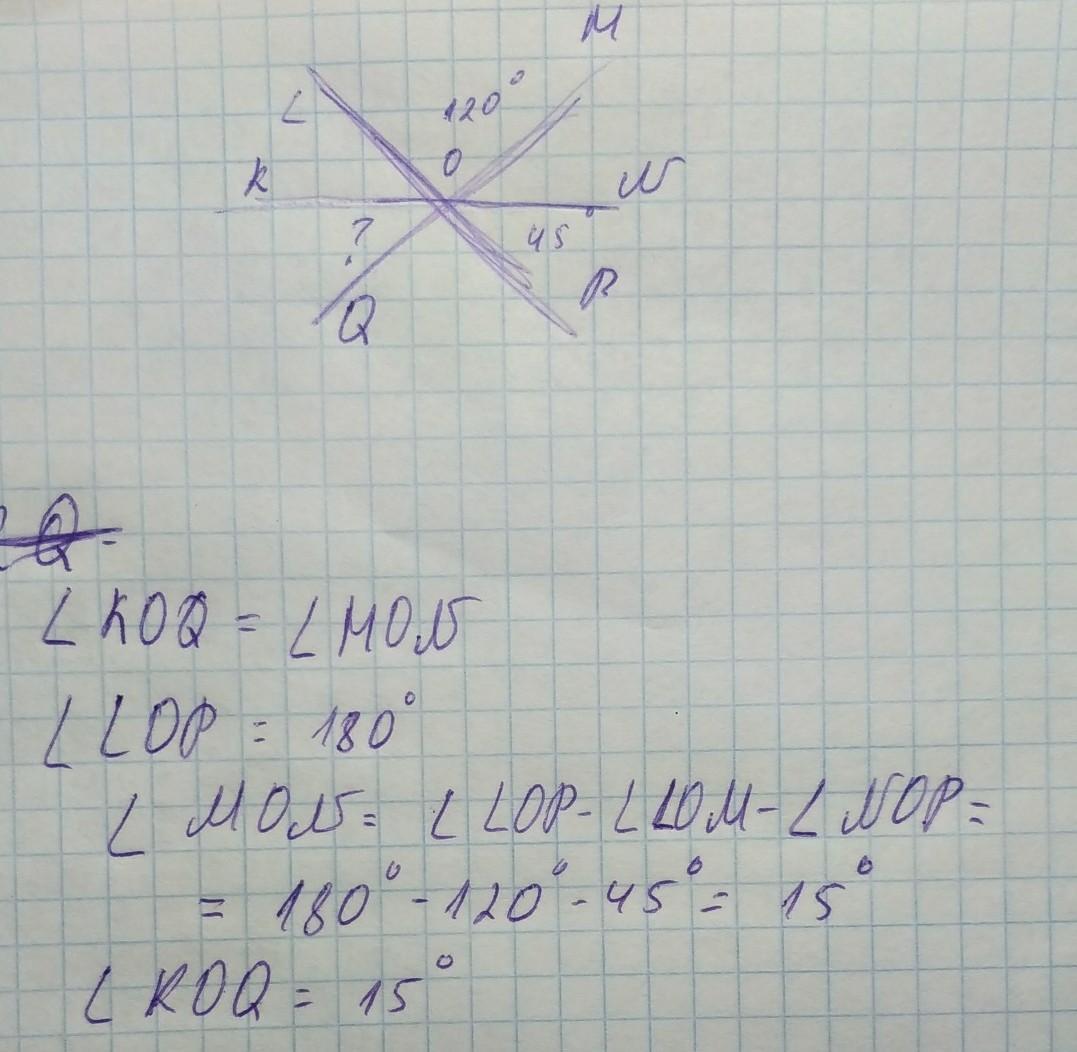 M
L
120°
O
K
N
?
45°
P
Q
∠KOQ = ∠MON
∠LOP = 180°
∠MON = ∠LOP - ∠LOM - ∠NOP =
= 180° - 120° - 45° = 15°
∠KOQ = 15°